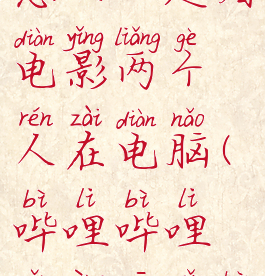 diàn yǐng liǎng gè
电影两个
rén zài diàn nǎo
人在电脑(
bì lì bì lì
哔哩哔哩